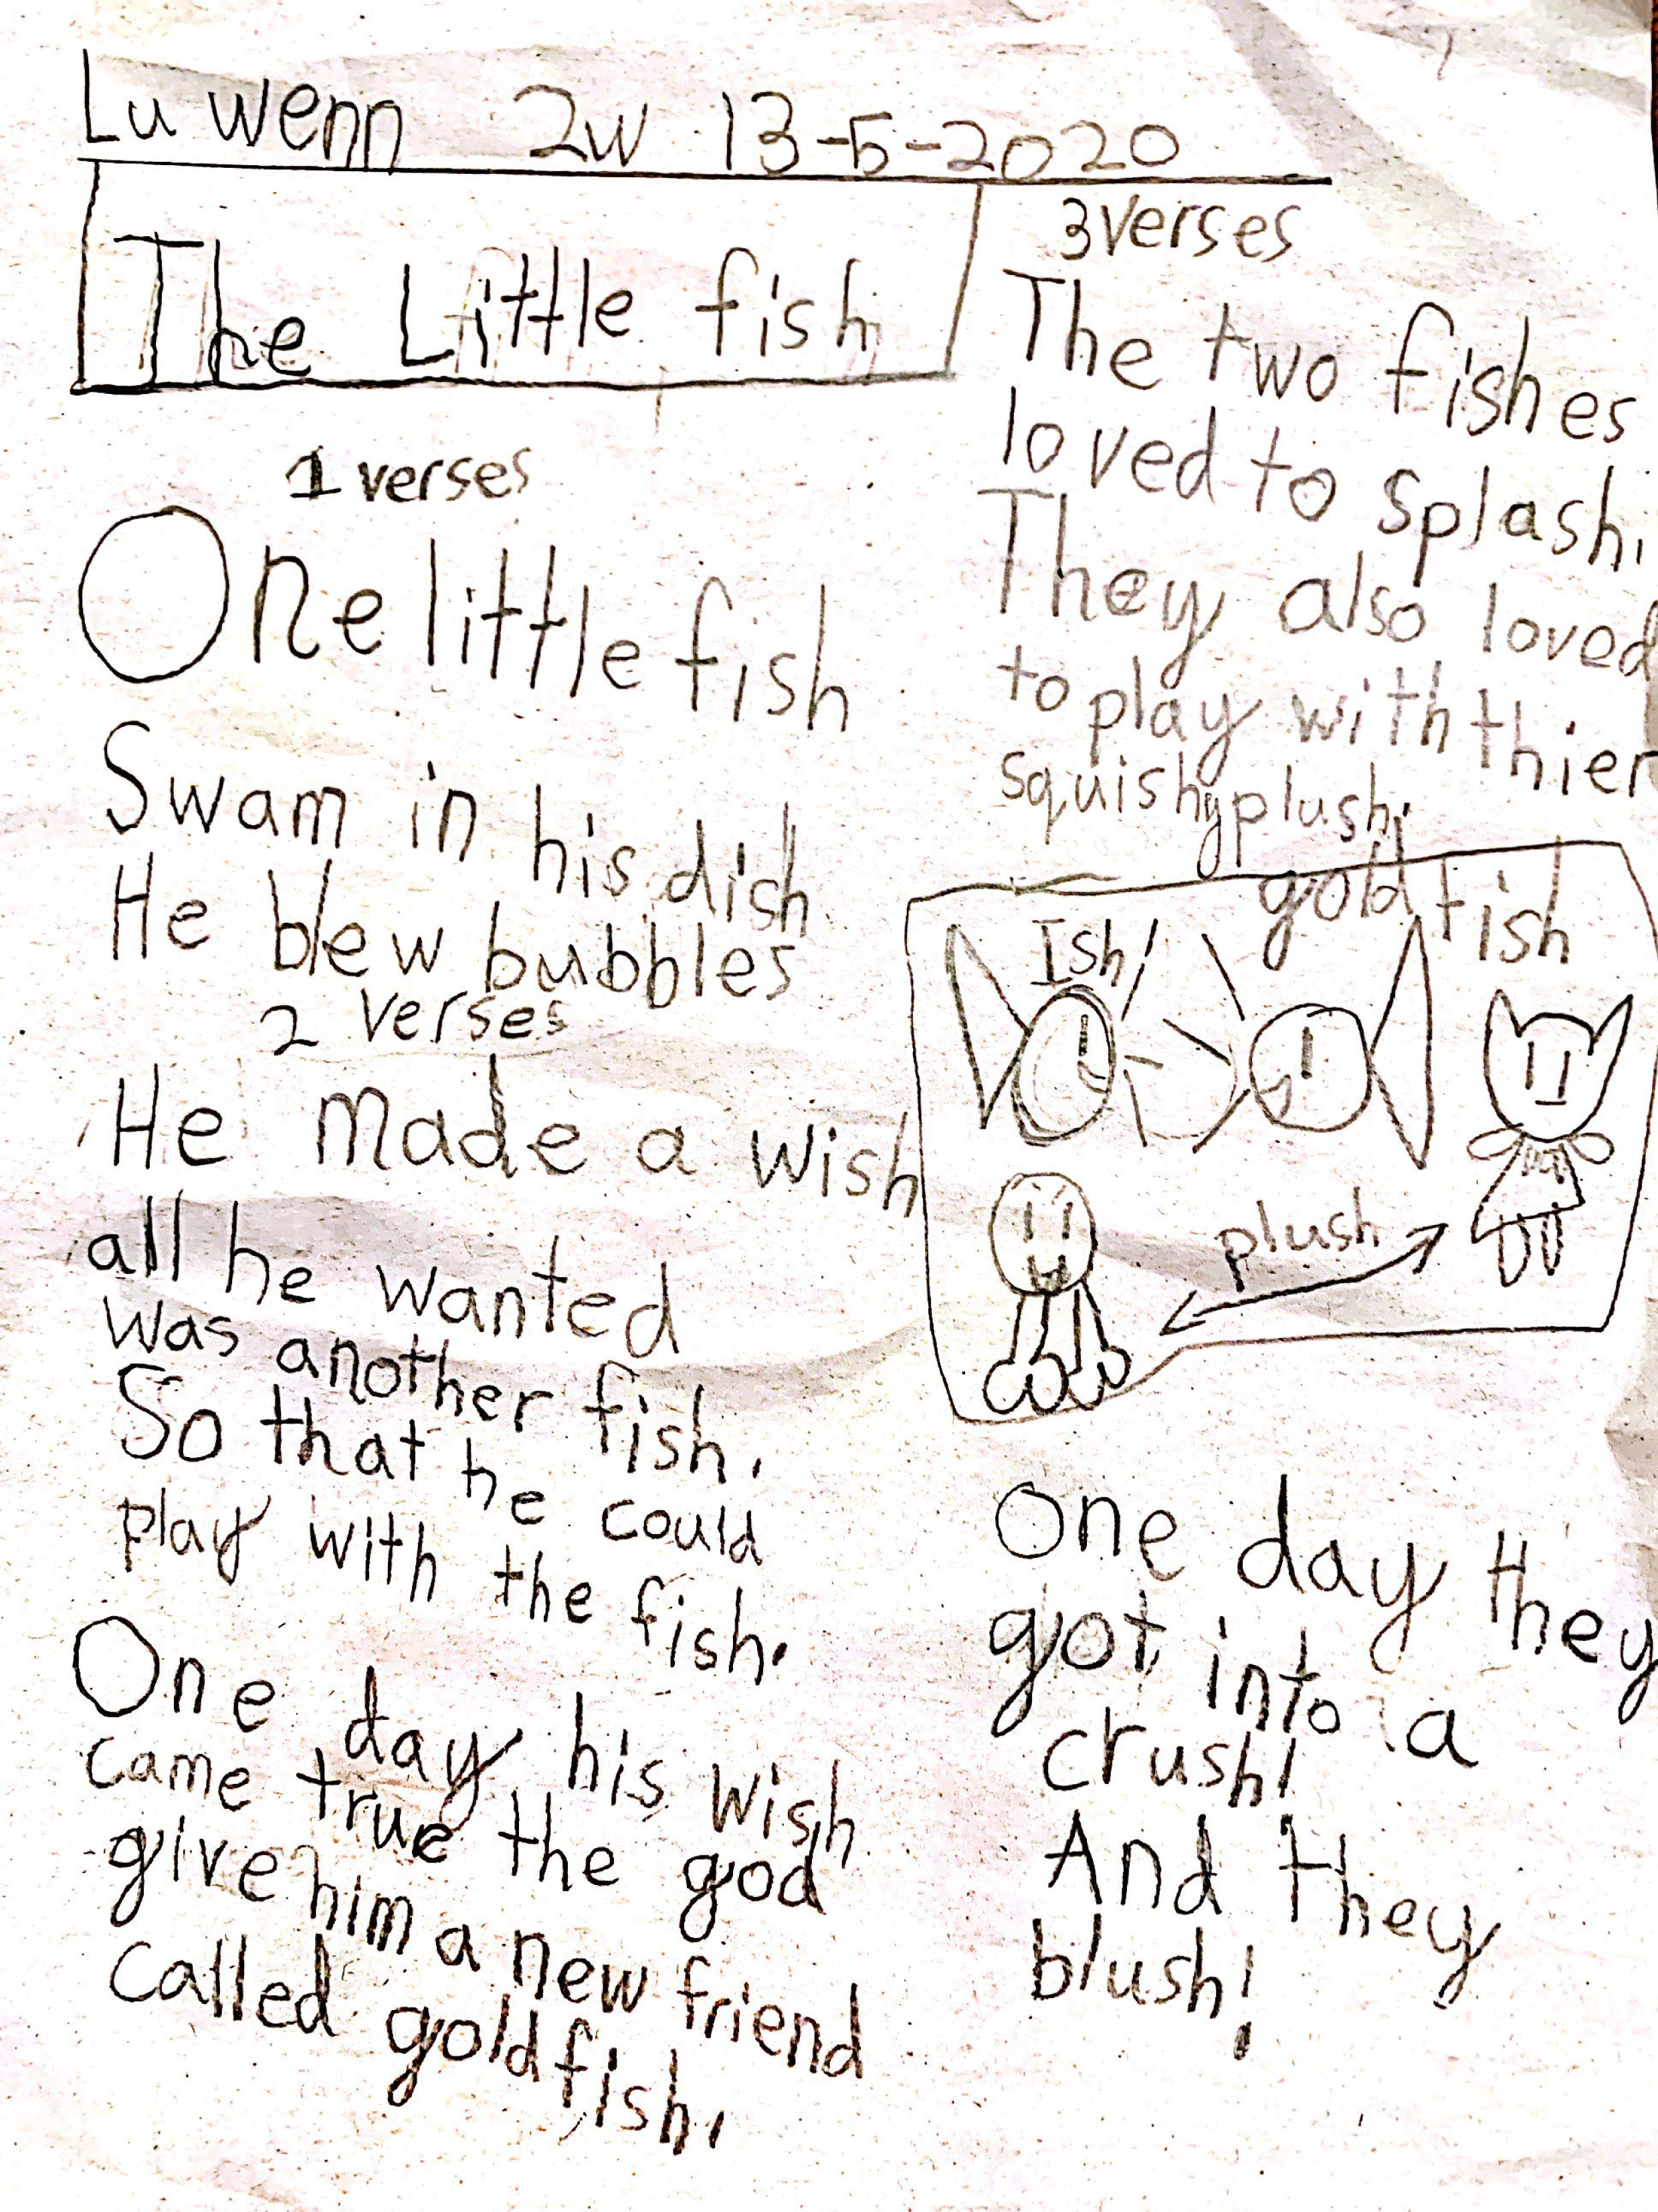 Lu wenn 2w 13-5-2020
The Little fish
1 verses
One little fish
Swam in his dish
He blew bubbles
2 verses
He made a wish
all he wanted
was another fish.
So that he could
play with the fish.
One day his wish
came true the god
give him a new friend
called goldfish.
3 verses
The two fishes
loved to splash.
They also loved
to play with thier
squishy plush.
gold fish
Ish!
plush
One day they
got into a
crush!
And they
blush!